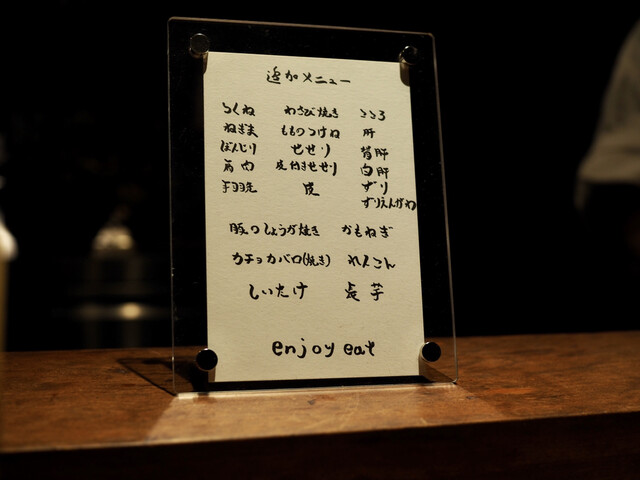 追加メニュー
つくね わさび焼き こころ
ねぎま もものつけね 肝
ぼんじり せせり 背肝
肩肉 皮付きせせり 白肝
手羽先 皮 ずり
ずりえんがわ
豚のしょうが焼き かもねぎ
カチョカバロ(焼き) れんこん
しいたけ 長芋
enjoy eat